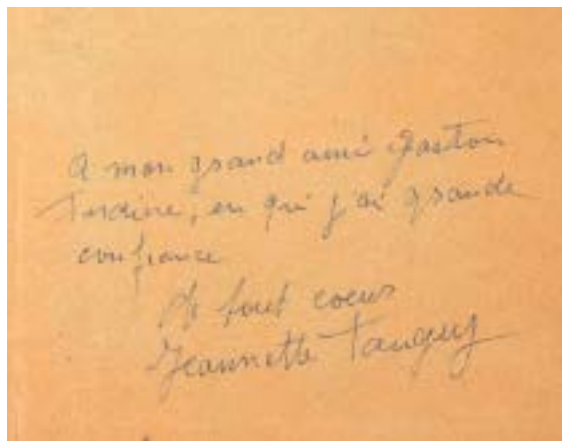 A mon grand ami Gaston
en qui j'ai grande
confiance
De tout coeur
Jeannette Tanguy